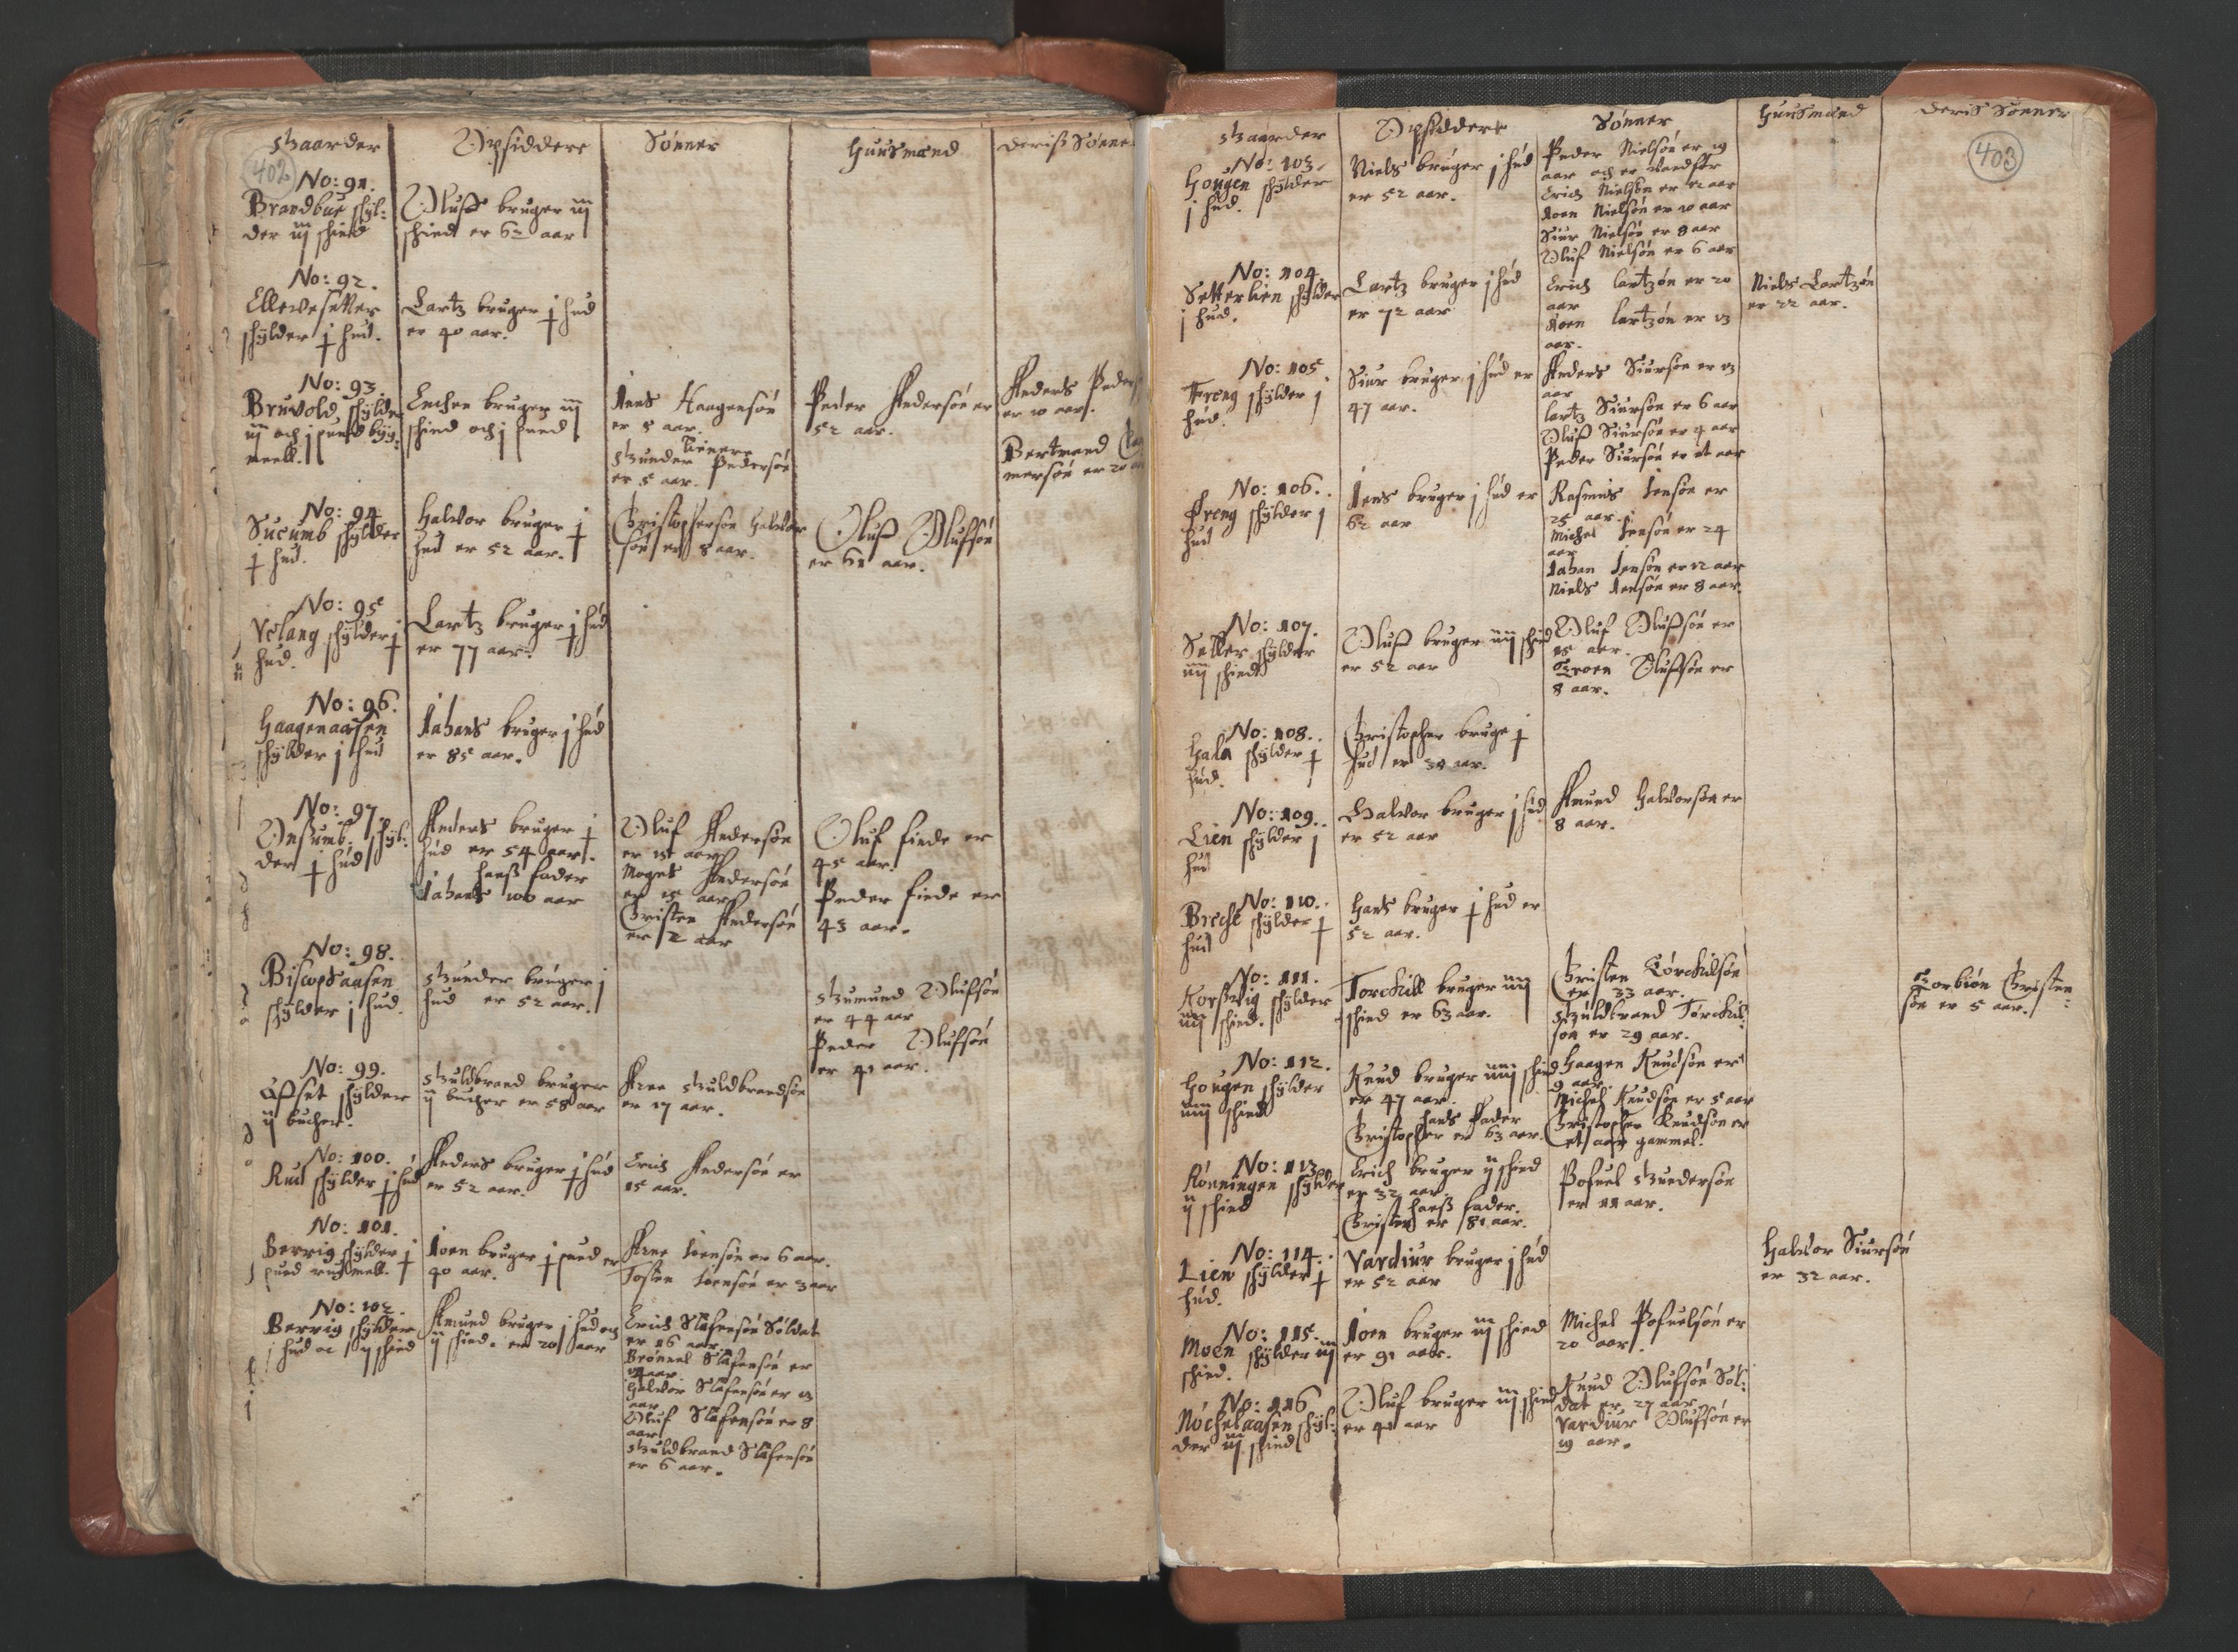 Gaarder
Opsiddere
Sønner
Huusmænd
Deriß Sønne
402
No: 91.
Brandbue skyl:
der iij skind
Oluff bruger iij
skind er 62 aar
No: 92.
Ellevesetter
skylder j hud.
Lartz bruger j hud
er 40 aar.
No: 93.
Bruvold skylder
iij och j pund byg:
meell.
Enchen bruger iij
skind och j pund
Jens Haagensøn
er 8 aar.
tienere
Gunder Pedersøn
er 5 aar.
Peder Andersøn er
52 aar.
Anders Peders
er 10 aar.
Bertmand
mersøn er 20
No: 94
Sucumb skylder
j hud.
Halvor bruger j
hud er 52 aar.
Christophersøn Halvor
søn er 8 aar.
Oluff Oluffsøn
er 61 aar.
No: 95
Velang skylder j
hud.
Lartz bruger j hud
er 77 aar.
No: 96.
Haagenaasen
skylder j hud
Jahans bruger j hud
er 85 aar.
No: 97.
Onsumb skyl:
der j hud
Anders bruger j
hud er 54 aar.
hanß fader
Jahans 100 aar
Oluf Andersøn
er aar
Mogns Andersøn
er 15 aar
Christen Andersøn
er 2 aar
Oluf finde er
45 aar.
Peder finde er
43 aar.
No: 98.
Biscopsaasen
skylder j hud.
Gunder bruger j
hud er 52 aar.
Gumund Olufsøn
er 44 aar
Peder Olufsøn
er 41 aar.
No: 99.
Opset skylder
ij bucher.
Guldbrand bruger
ij bucher er 58 aar
Arne Guldbrandsøn
er 17 aar.
No: 100.
Rud skylder j hud
Anders bruger j hud
er 52 aar.
Erich Andersøn er
15 aar.
No: 101.
Berrig skylder j
pund rugmell.
Joen bruger j pund er
40 aar.
Arne Joensøn er 6 aar.
Tosten Joensøn er 3 aar
No: 102.
Berrig skylder
j hud oc ij skind
Amund bruger j hud och
ij skind. er 20 aar
Erich Stafensøn Soldat
er 16 aar.
Brønnel Stafensøn er
14 aar.
Halvor Stafensøn er 13
aar
Oluf Stafensøn er 8
aar
Guldbrand Stafensøn
er 6 aar.
Gaarder
Opsiddere
Sønner
Huusmænd
Deris Sønner
403
No: 103.
Hougen skylder
j hud.
Niels bruger j hud
er 52 aar.
Peder Nielsøn er 19
aar och er vandfør
Erich Nielsøn er 12 aar
Joen Nielsøn er 10 aar
Siur Nielsøn er 8 aar
Oluf Nielsøn er 6 aar
No: 104.
Setterlien skylder
j hud.
Lartz bruger j hud
er 72 aar
Erich lartzøn er 20
aar
Joen lartzøn er 13
aar.
Niels Lartzøn
er 22 aar.
No: 105.
Freng skylder j
hud.
Siur bruger j hud er
47 aar.
Anders Siursøn er 13
aar
lartz Siursøn er 6 aar
Oluff Siursøn er 4 aar
Peder Siursøn er it aar
No: 106.
Freng skylder j
hud
Jens bruger j hud er
62 aar
Rasmus Jensøn er
25 aar.
Michel Jensøn er 24
aar
Jahan Jensøn er 12 aar
Niels Jensøn er 8 aar.
No: 107.
Setter skylder
iiij skind
Oluff bruger iiij skind
er 52 aar
Oluf Olufsøn er
15 aar.
Groen Olufsøn er
8 aar.
No: 108.
Hala skylder j
hud.
Christopher bruge j
hud er 38 aar.
No: 109.
Lien skylder j
hud
Halvor bruger j hud
er 52 aar
Amund Halvorsøn er
8 aar.
No: 110.
Breche skylder j
hud
Hans bruger j hud er
52 aar.
No: 111.
Korßvig skylder
iiij skind.
Torckill bruger iiij
skind er 63 aar.
Christen Torckilsøn
er 33 aar.
Guldbrand Torckil:
søn er 29 aar.
Torbiøn Christen:
søn er 5 aar.
No: 112.
Hougen skylder
iiij skind
Knud bruger iiij skind
er 47 aar.
hans fader
Christopher er 63 aar.
Haagen Knudsøn er
9 aar.
Michel Knudsøn er 5 aar
Christopher Knudsøn er
et aar gammel.
No: 113
Rønningen skylder
ij skind
Erich bruger ij skind
er 32 aar.
hanß fader.
Christen er 81 aar.
Pofuel Gundersøn
er 11 aar.
No: 114.
Lien skylder j
hud.
Vardiur bruger j hud
er 52 aar
Halvor Siursøn
er 32 aar.
No: 115.
Moen skylder iij
skind.
Joen bruger iij skind
er 91 aar.
Michel Pofuelsøn er
20 aar.
No: 116
Nøchelaasen skyl:
der iij skind
Oluf bruger iij skind
er 41 aar
Knud Olufsøn Sol:
dat er 27 aar.
Vardiur Olufsøn er
19 aar.